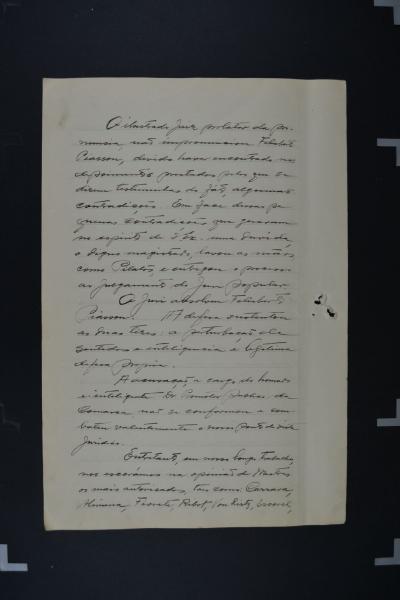 O illustrado Juiz prolator da pro-
nuncia, não impronunciou Feliberto
Piasson, devido haver encontrado nos
depoimentos prestados pelos que se
dizem testemunhas do facto, algumas
contradicções. Em face dessas pe-
quenas contradicções que geraram
no espirito de S. Ex. uma duvida,
o digno magistrado, lavou as mãos
como Pilatos, e entregou o processo
ao julgamento do Jury popular.
O Jury absolveu Feliberto
Piasson. A defesa sustentou
as duas teses: a perturbação de
sentidos e intelligencia e legitima
defesa propria.
A accusação, a cargo do honrado
e intelligente Dr Promotor Publico da
Comarca, não se conformou e com-
bateu valentemente o nosso ponto de vista
juridico.
Entretanto, em nosso longo trabalho,
nos escorámos na opinião de Mestres
os mais autorisados, taes como: Carrara,
Alimena, Fioretti, Ribot, Von Liszt,